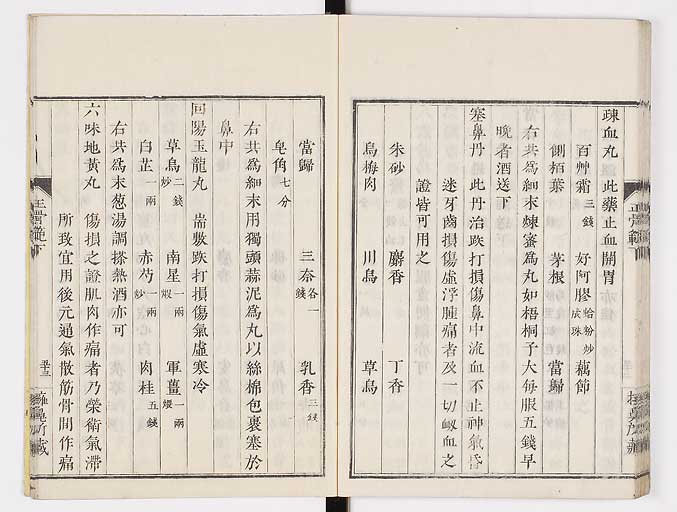 疎血丸　此藥止血開胃
百艸霜三錢　好阿膠蛤粉炒成珠　藕節
側栢葉　茅根　當歸
右共為細末煉蜜為丸如梧桐子大每服五錢早
晚者酒送下
塞鼻丹　此丹治跌打損傷鼻中流血不止神氣昏
迷牙齒損傷虛浮腫痛者及一切衂血之
證皆可用之
朱砂　麝香　丁香
烏梅肉　川烏　草烏
當歸　三奈各一錢　乳香三錢
皂角七分
右共為細末用獨頭蒜泥為丸以絲棉包裹塞於
鼻中
回陽玉龍丸　耑敷跌打損傷氣虛寒冷
草烏二錢炒　南星一兩煆　軍薑一兩煨
白芷一兩　赤芍一兩炒　肉桂五錢
右共為末葱湯調搽熱酒亦可
六味地黃丸　傷損之證肌肉作痛者乃榮衛氣滯
所致宜用後元通氣散筋骨間作痛